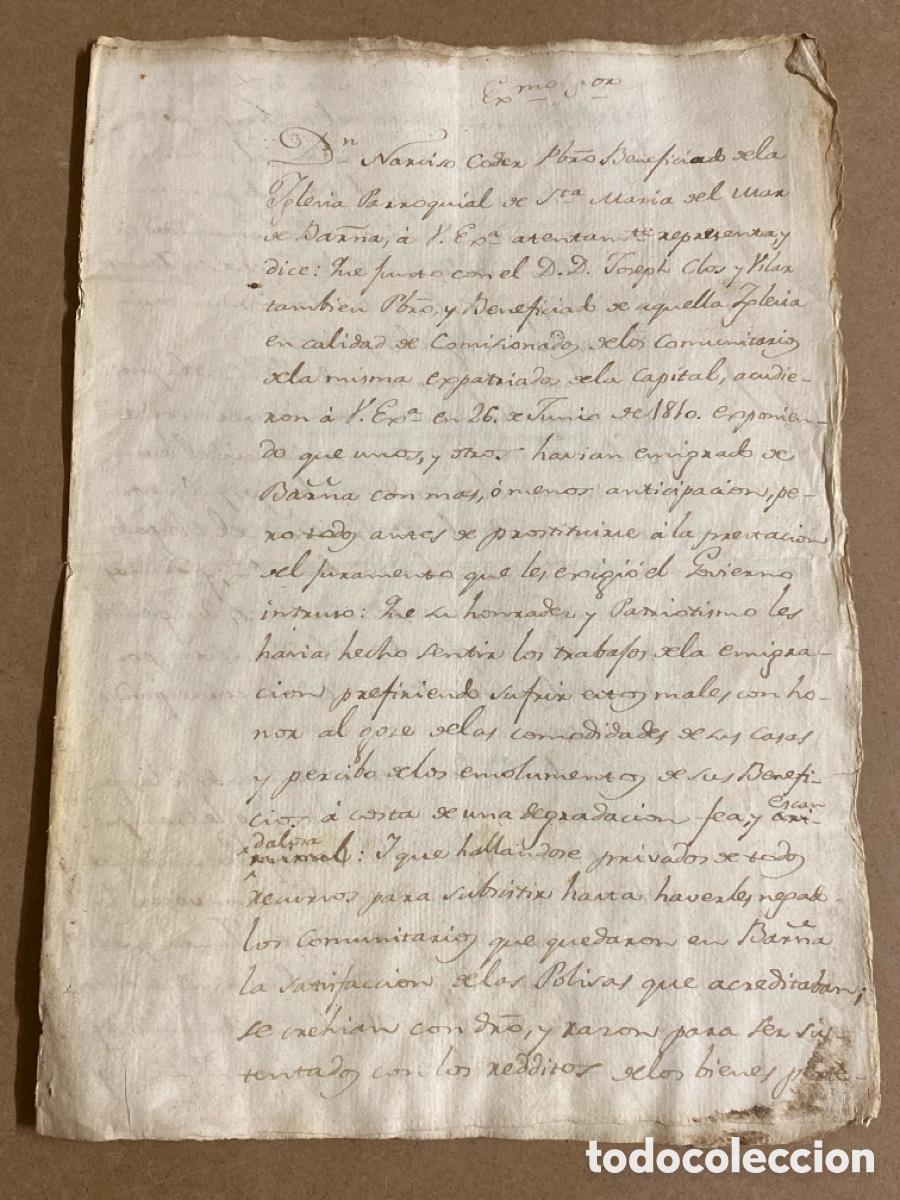 Exmo Sor
Dn Narciso Coder Pbro Beneficiado de la
Iglesia Parroquial de Sta Maria del Mar
de Barña, á V. Exa atentamte representa, y
dice: Que junto con el D. D. Joseph Clos y Vilar
tambien Pbro, y Beneficiado de aquella Iglesia
en calidad de Comisionados de los Comunitarios
de la misma expatriados de la Capital, acudie-
ron á V. Exa en 26. de Junio de 1810. exponien-
do que unos, y otros havian emigrado de
Barña con mas, ó menos anticipacion, pe-
ro todos antes de prostituirse á la prestacion
del juramento que les exigió el Govierno
intruso: Que su honradez y Patriotismo les
havia hecho sentir los trabajos de la emigra-
cion prefiriendo sufrir estos males con ho-
nor al gose de las comodidades de sus casas
y percibo de los emolumentos de sus Benefi-
cios á costa de una degradacion fea, y escan
dalosa: I que hallandose privados de todos
recursos para subsistir hasta haverles negado
los Comunitarios que quedaron en Barña
la satisfaccion de las Polisas que acreditaban;
se crehian con dro, y razon para ser sus
tentados con los redditos de los bienes perte-
todocoleccion